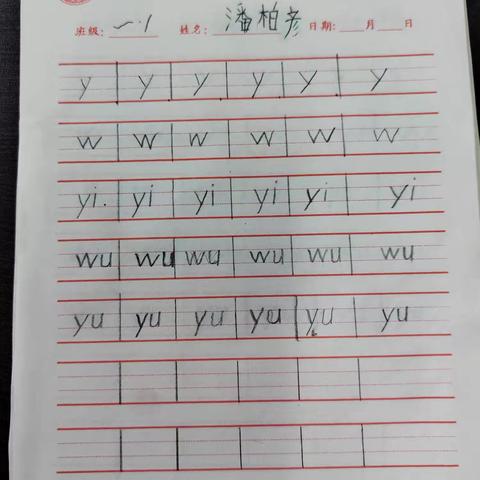 班级: 一.1 姓名: 潘柏彦 日期: 月 日
y y y y y y
w w w w w w
yi yi yi yi yi yi
wu wu wu wu wu wu
yu yu yu yu yu yu